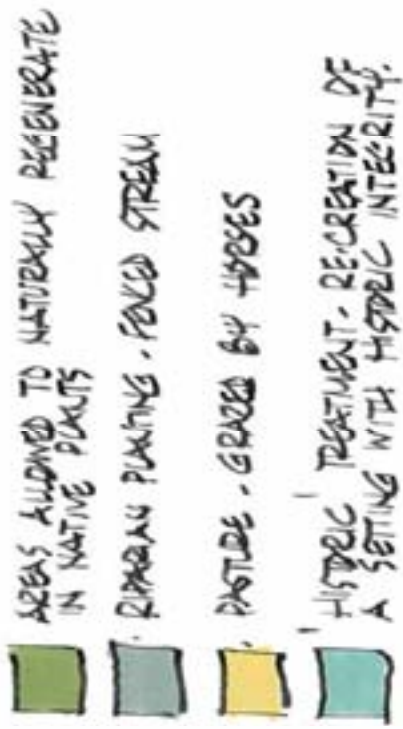 AREAS ALLOWED TO NATURALLY REGENERATE
IN NATIVE PLANTS
RIPARIAN PLANTING - FENCED STREAM
PASTURE - GRAZED BY HORSES
HISTORIC TREATMENT - RE-CREATION OF
A SETTING WITH HISTORIC INTEGRITY.